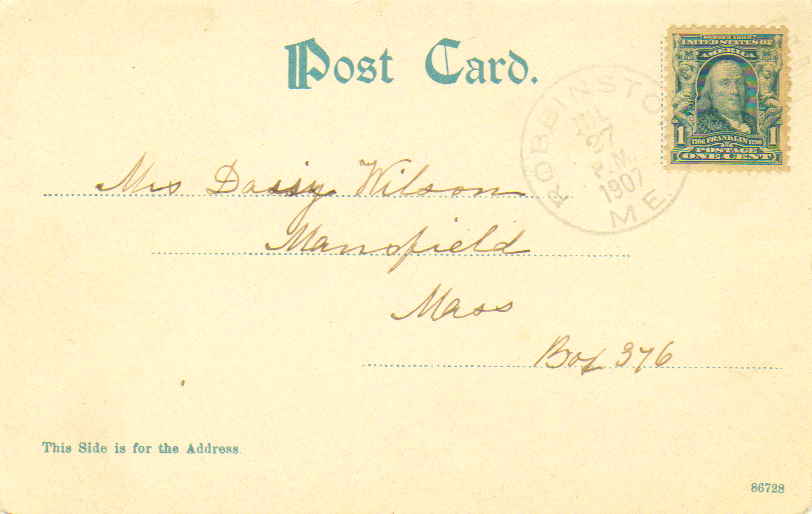 Post Card.
ROBBINSTO
JUL
27
P.M.
1907
ME.
SERIES 1902
UNITED STATES OF
AMERICA
1 1706 FRANKLIN 1790 1
POSTAGE
ONE CENT
Mrs Daisy Wilson
Mansfield
Mass
Box 376
This Side is for the Address
86728